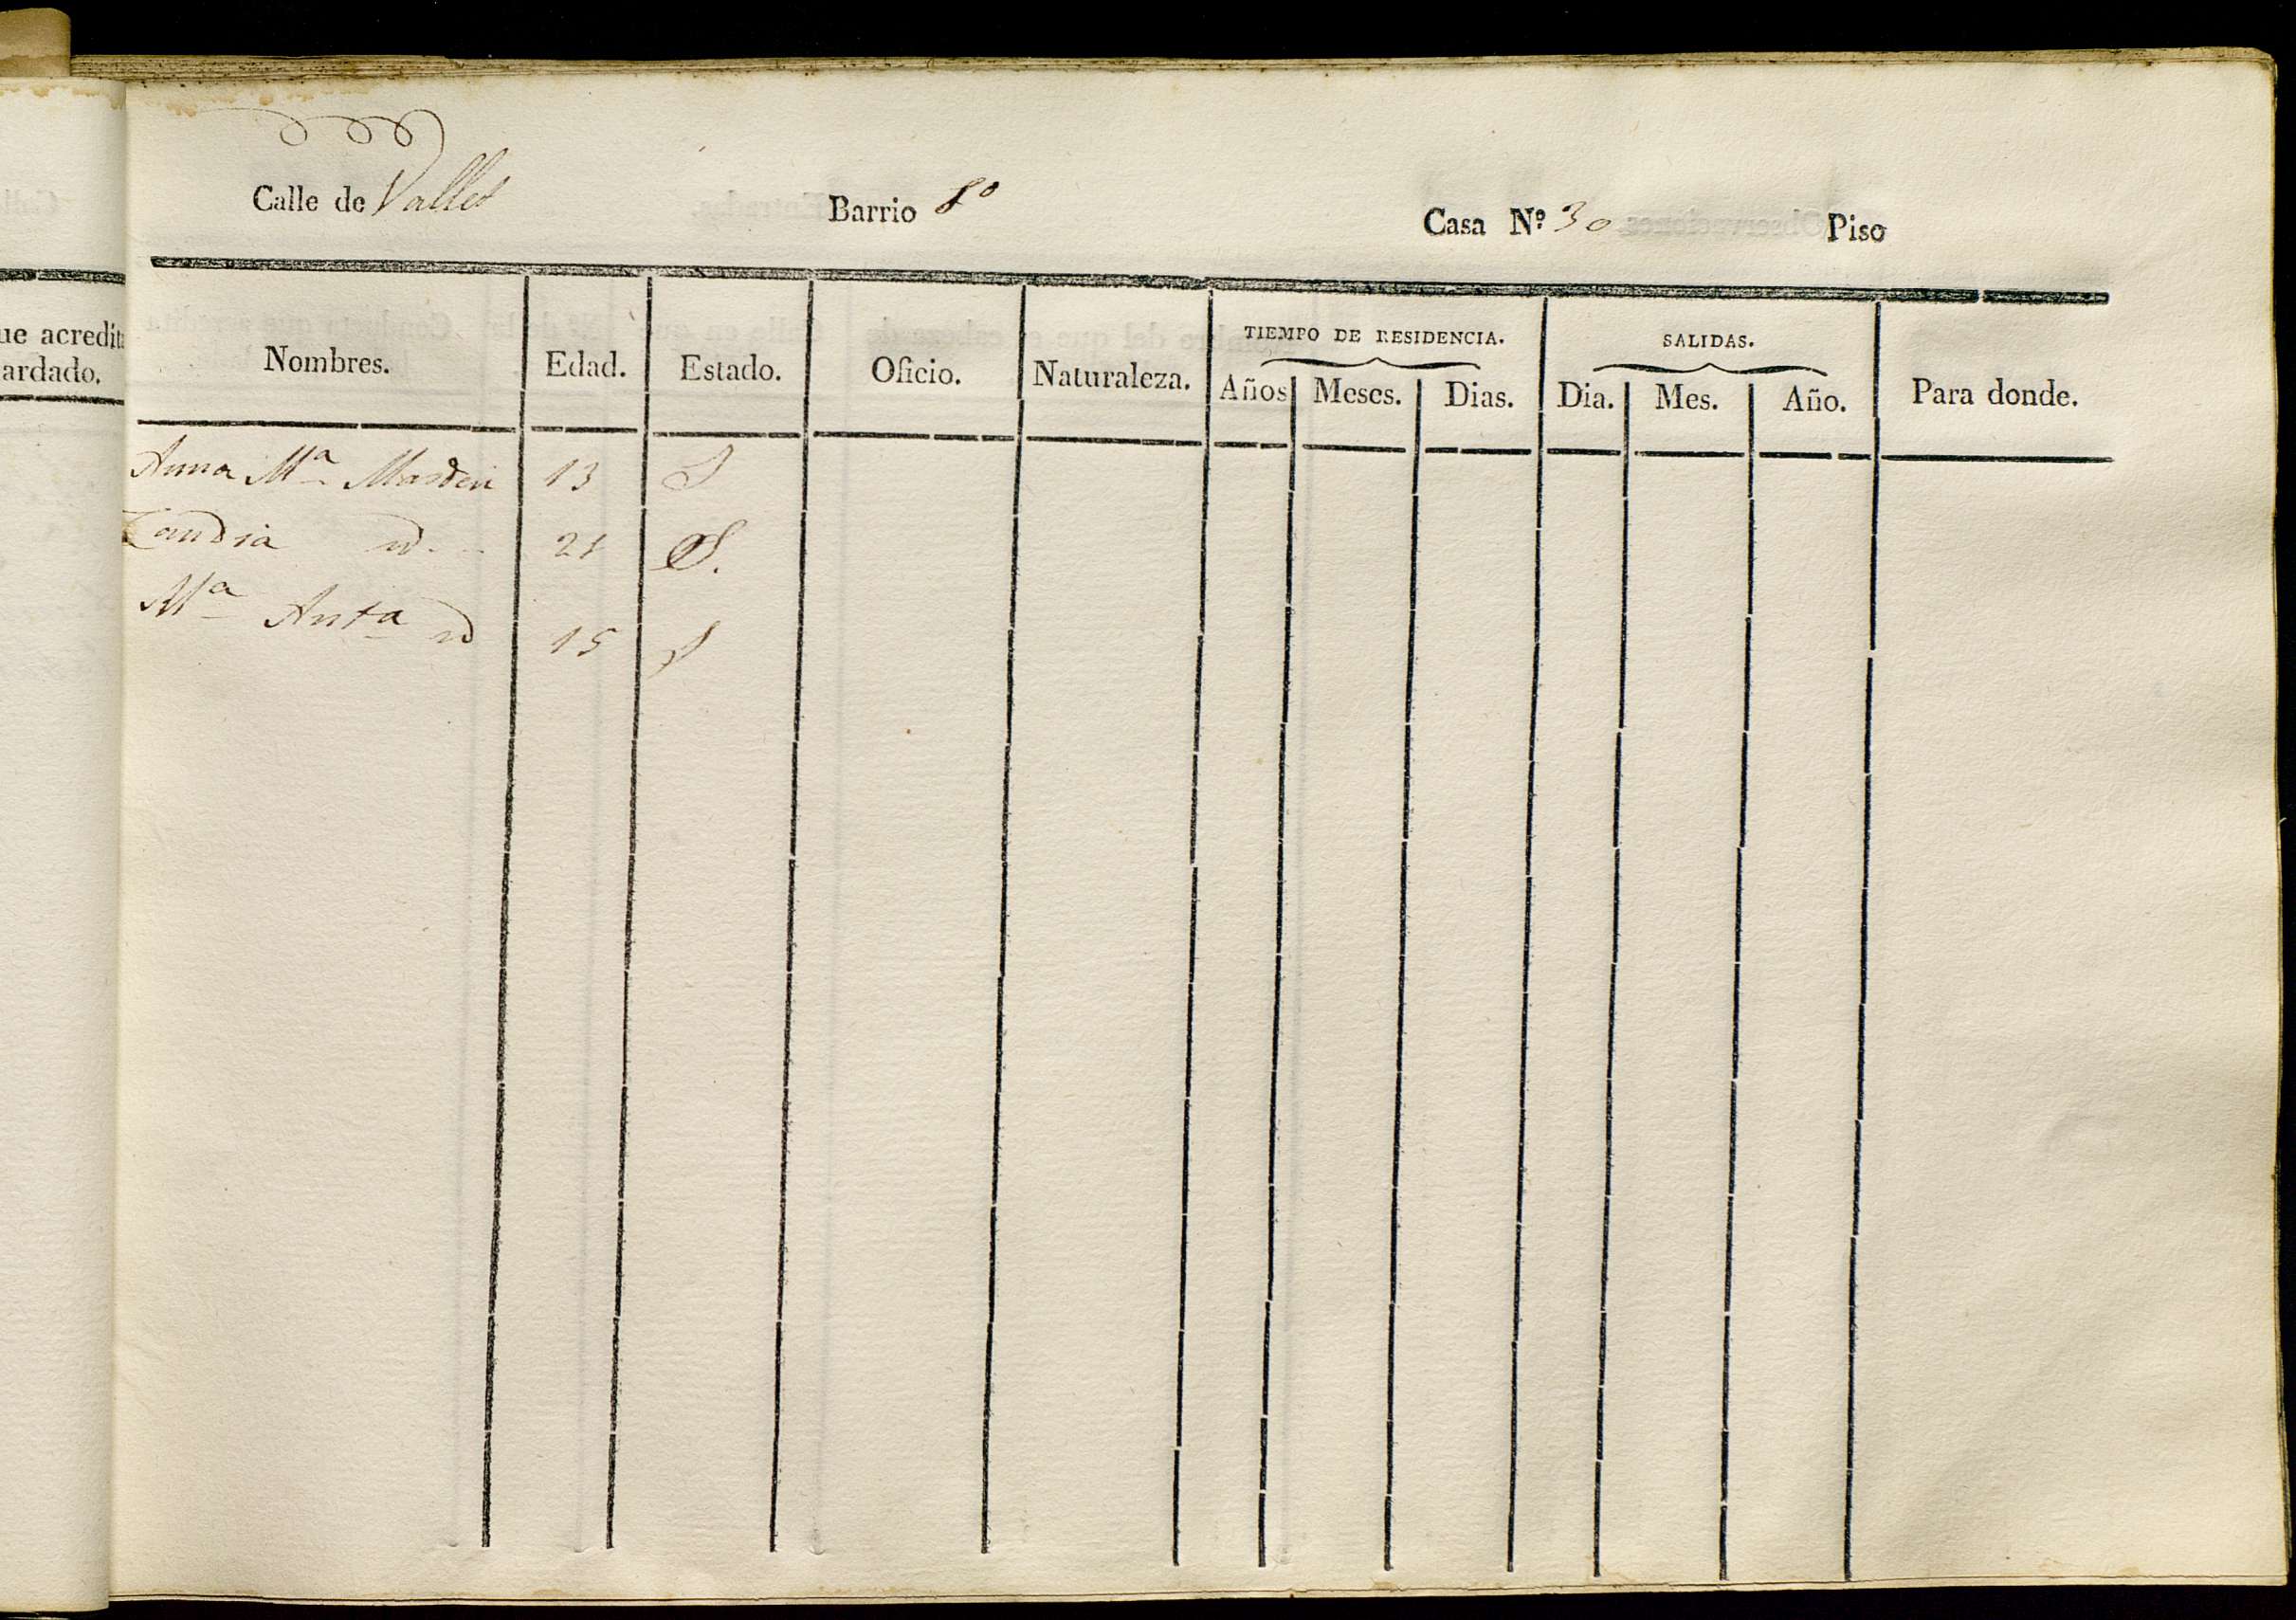 Calle de Valles Barrio 8º Casa Nº 30 Piso
ue acredita
ardado.
TIEMPO DE RESIDENCIA. SALIDAS.
Nombres. Edad. Estado. Oficio. Naturaleza. Años Meses. Dias. Dia. Mes. Año. Para donde.
Anna Mª Masdeu 13 S
Candia id. 21 S.
Mª Antª id 15 S